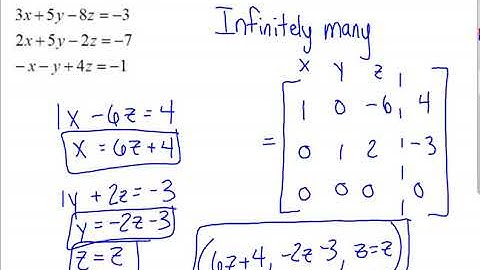 3x+5y−8z=−3
2x+5y−2z=−7
−x−y+4z=−1
Infinitely many
x y z
1 0 −6 4
= 0 1 2 −3
0 0 0 0
1x − 6z = 4
x = 6z + 4
1y + 2z = −3
y = −2z − 3
z = z
(6z+4, −2z−3, z=z)